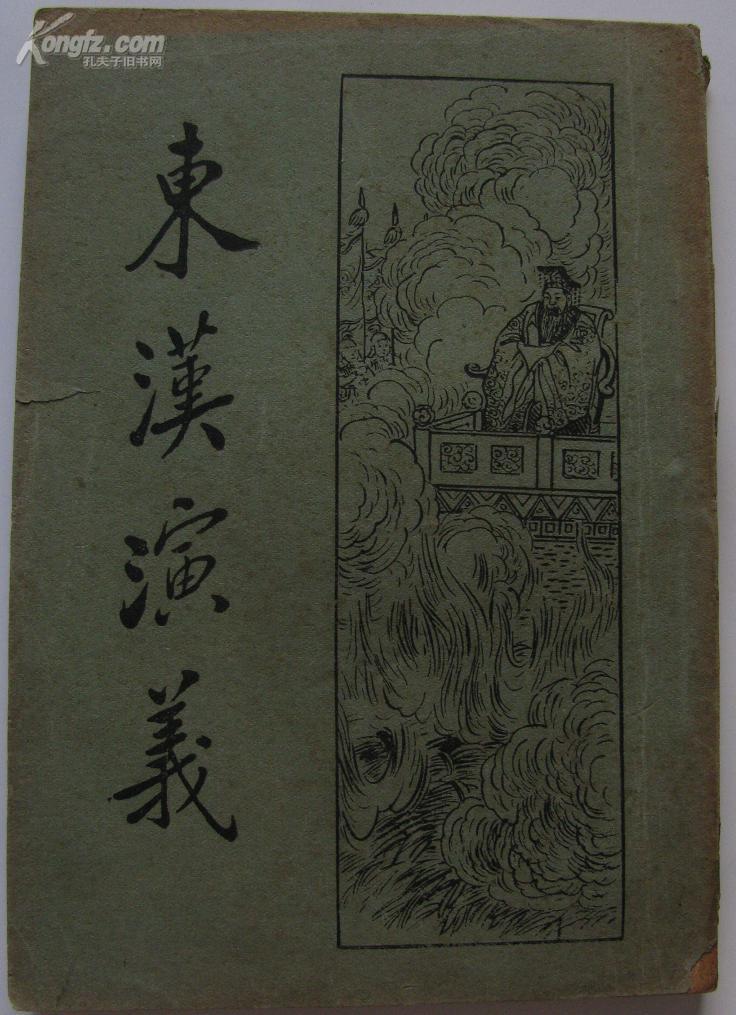 Kongfz.com
孔夫子旧书网
東漢演義